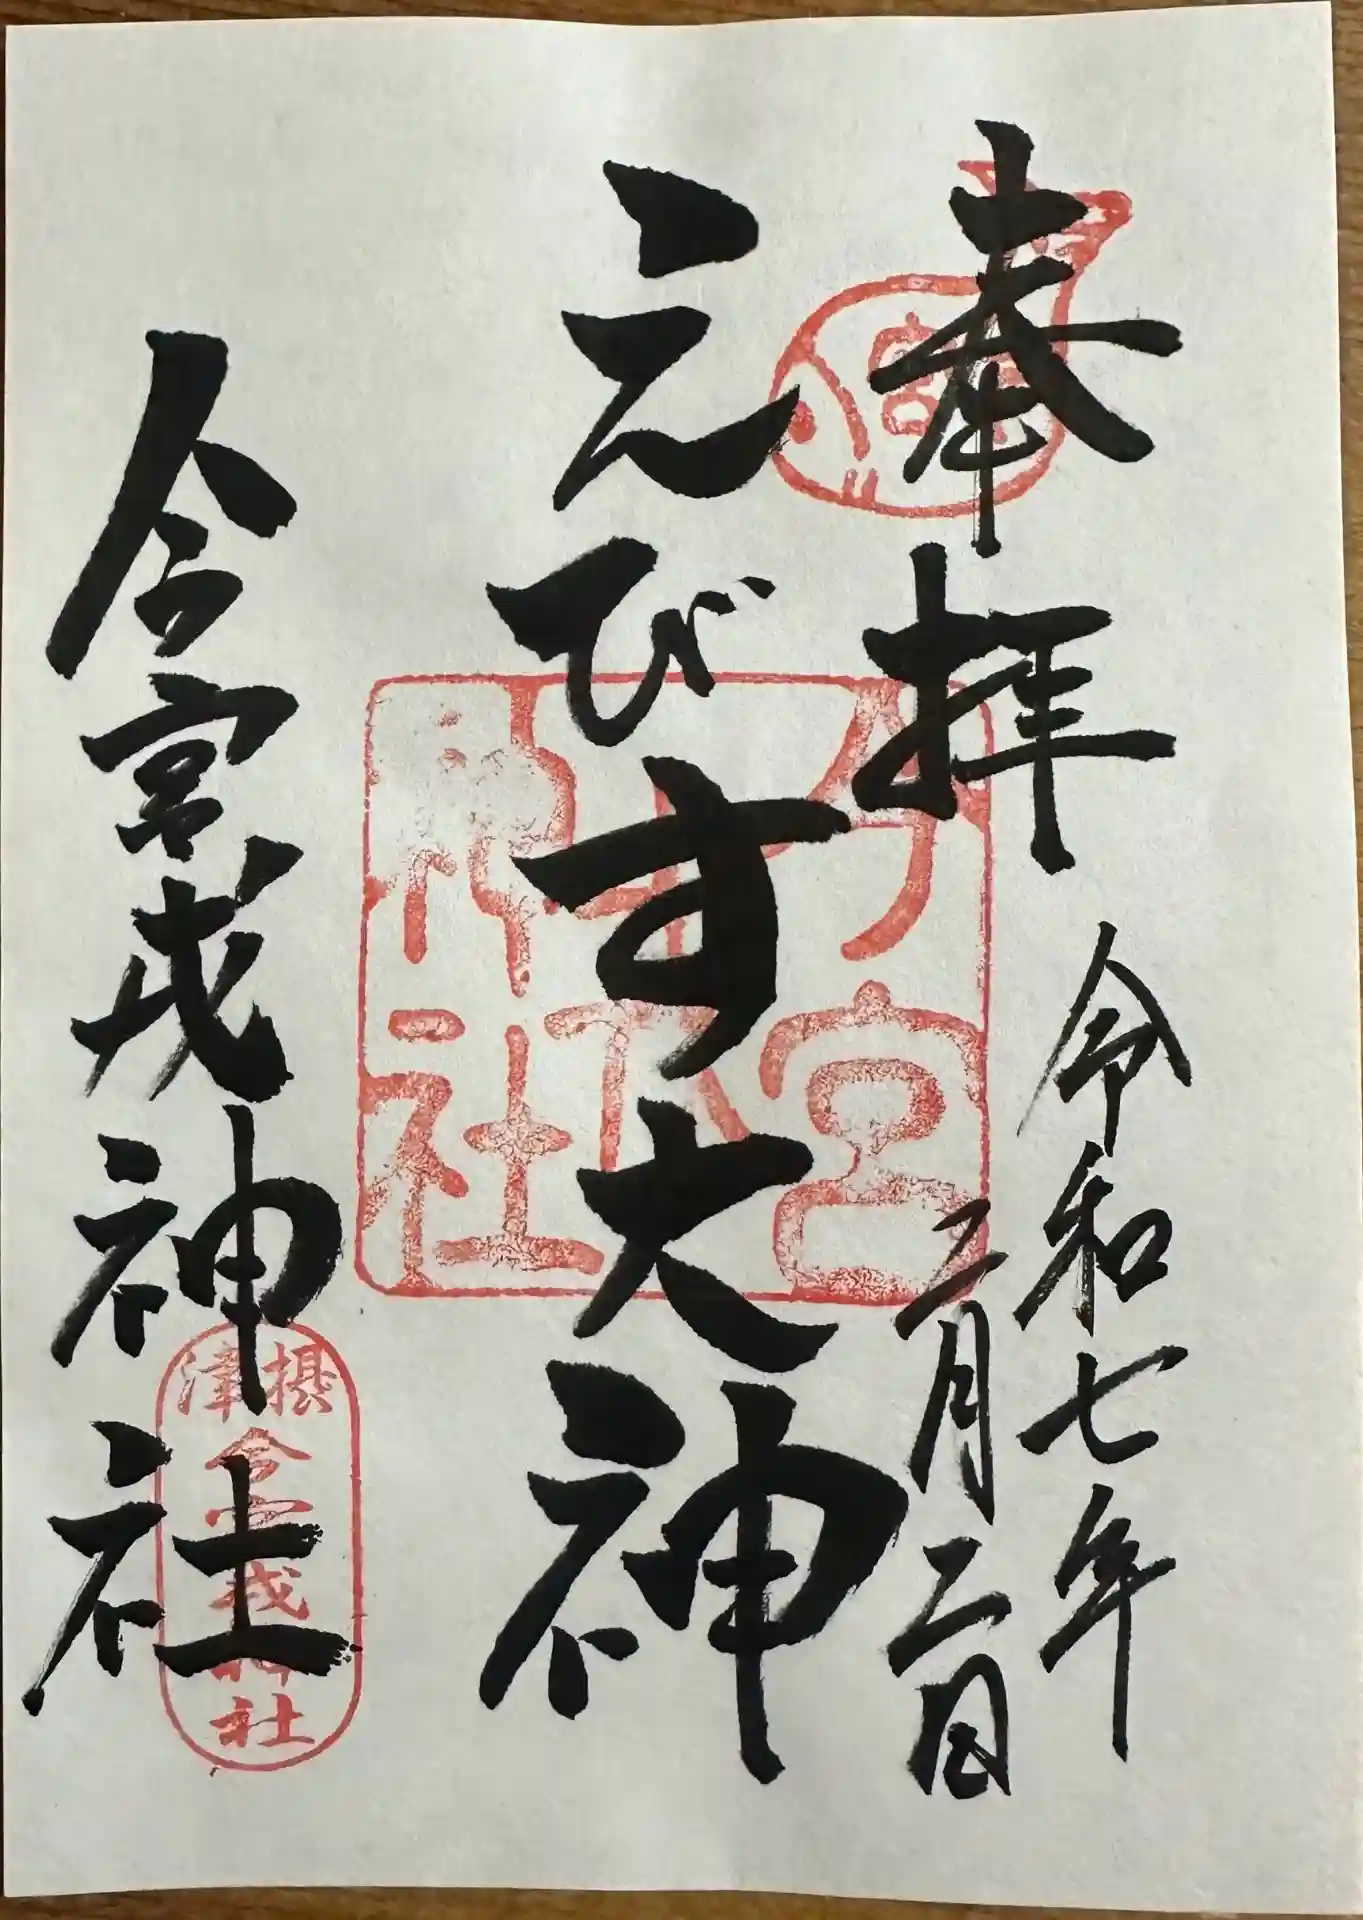 奉拝
令和七年
二月二日
えびす大神
今宮戎神社
摂津
今宮戎神社